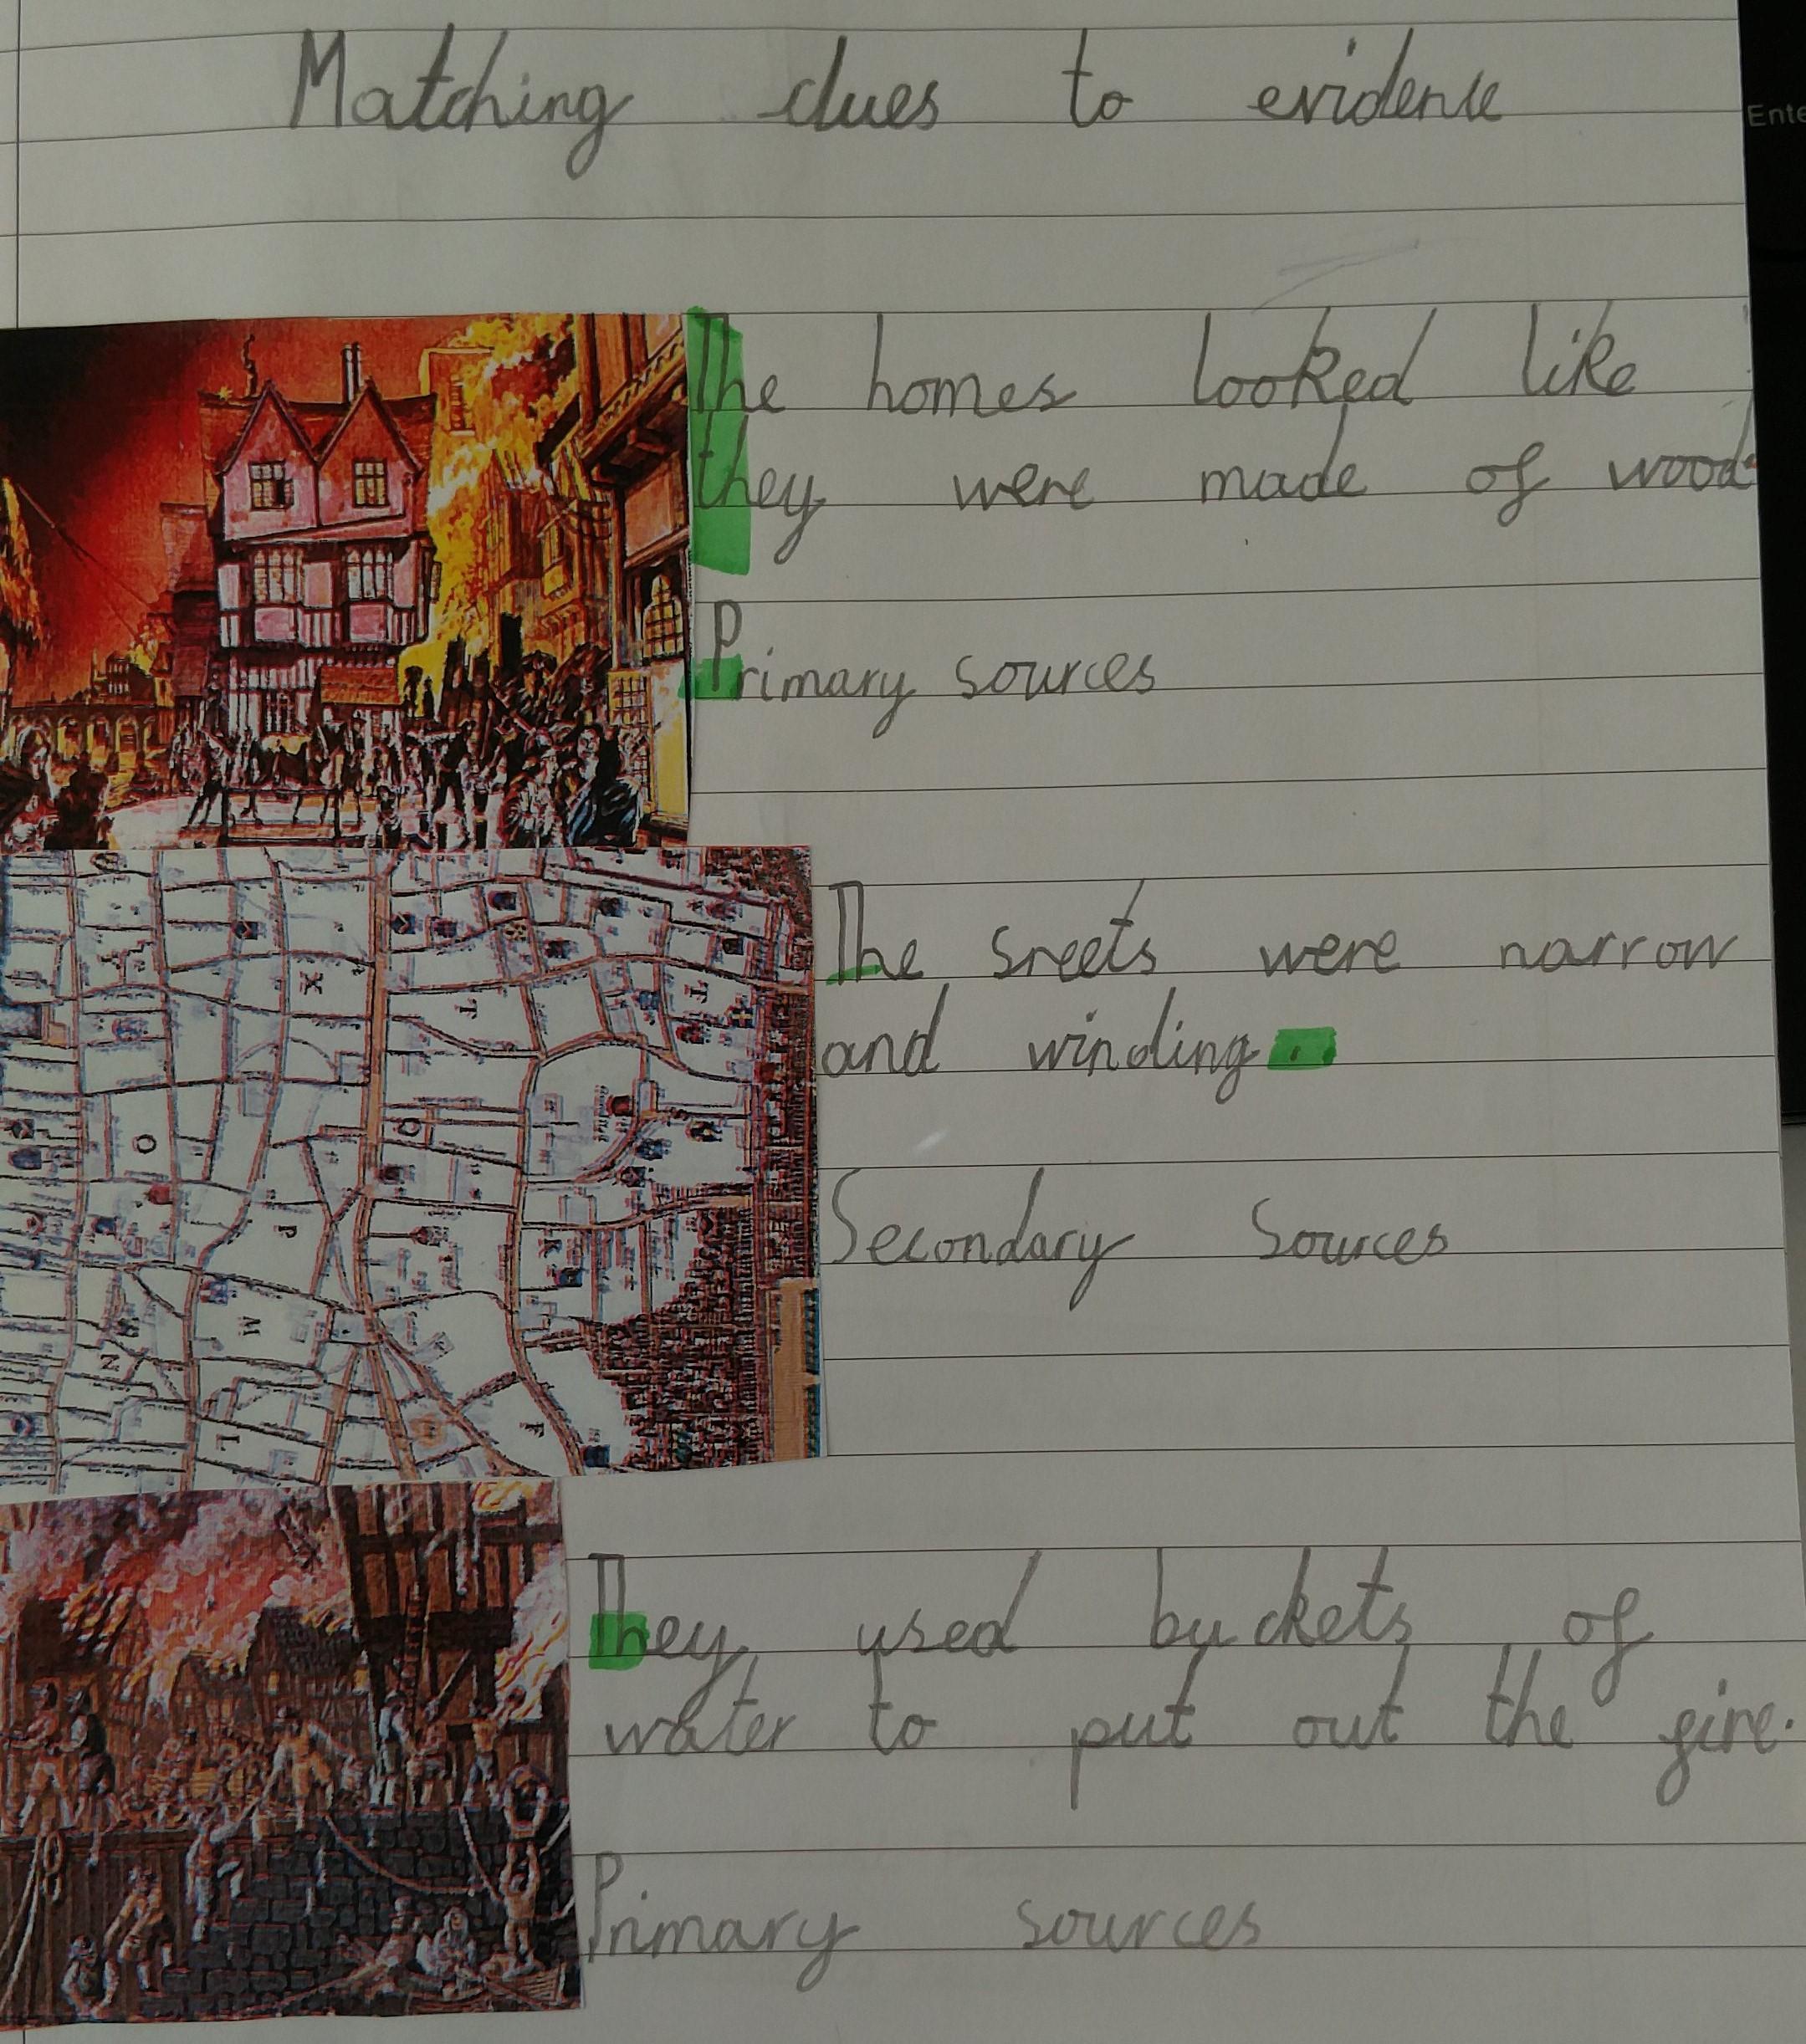 Matching clues to evidence
Ente
The homes looked like
they were made of wood
Primary sources
The sreets were narrow
and winding..
Secondary Sources
They used buckets of
water to put out the fire.
Primary sources
X
T
T
O
Q
P
R
M
N
L
F